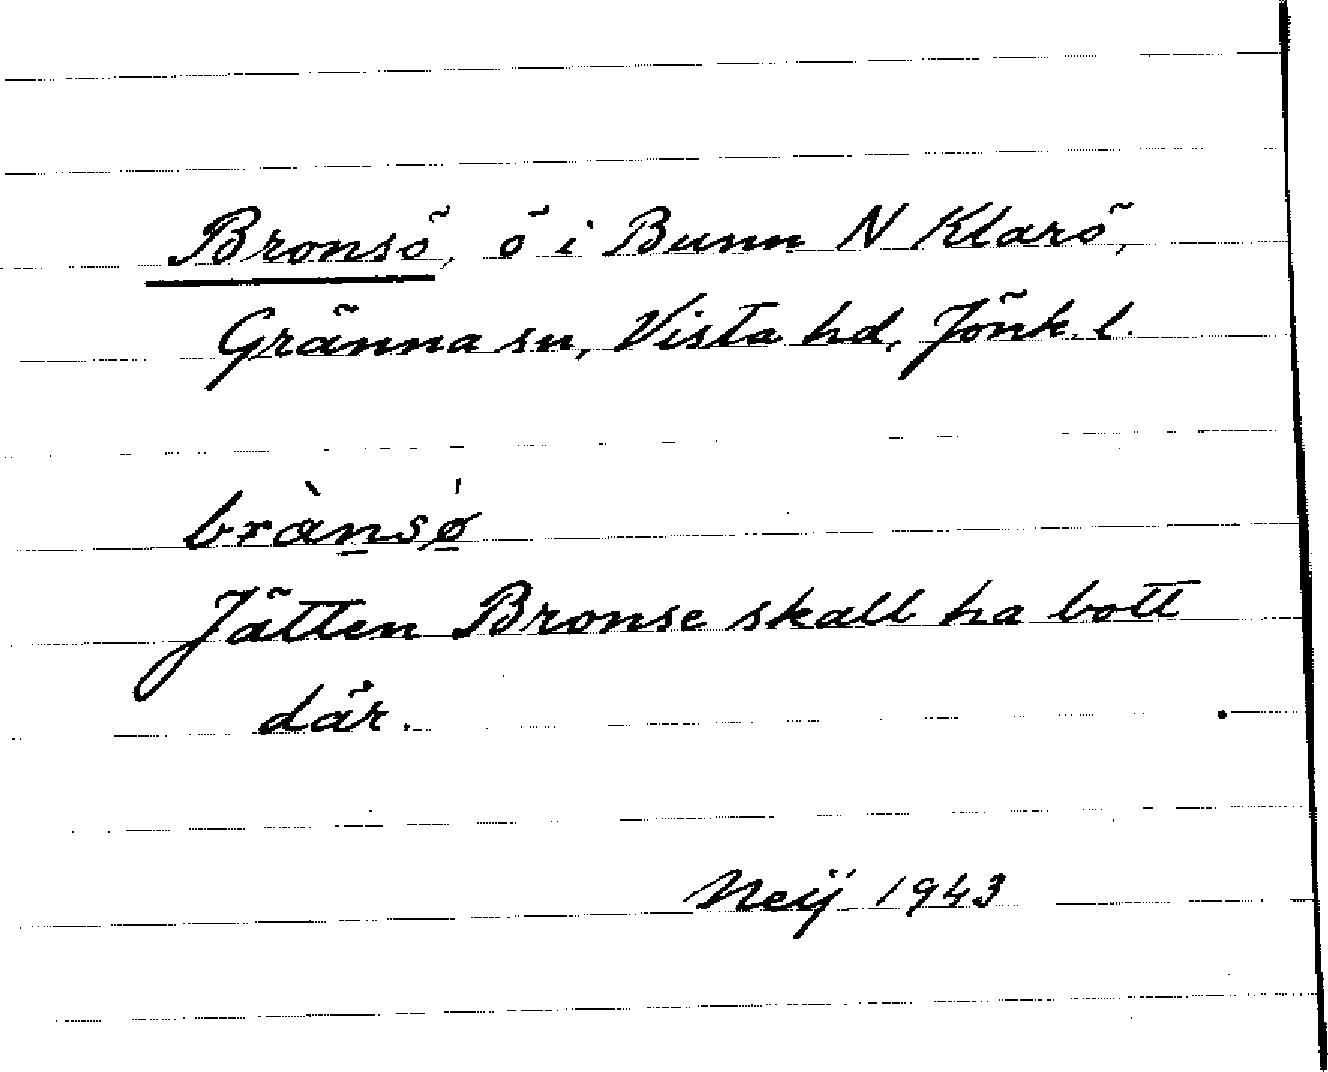 Bronsö, ö i Bunn N Klarö,
Gränna sn, Vista hd, Jönk. l.
brànsø̀
Jätten Bronse skall ha bott
där.
Neij 1943